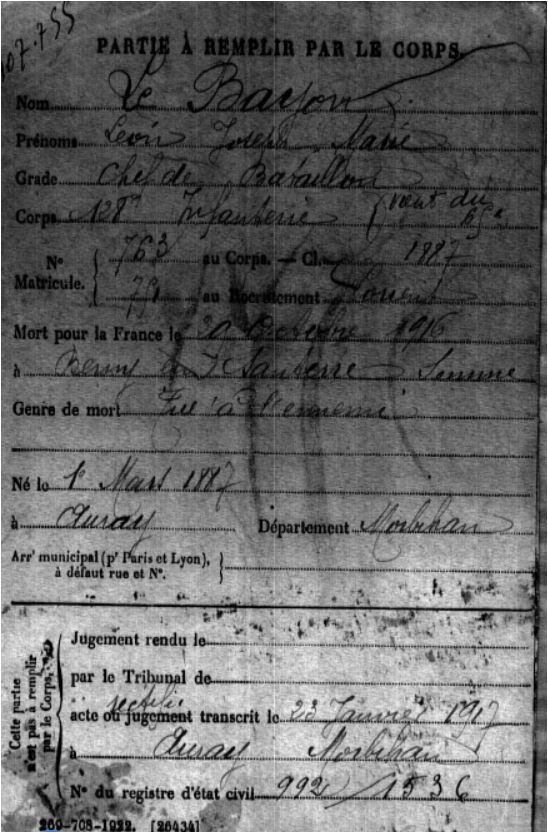 107.755
PARTIE À REMPLIR PAR LE CORPS.
Nom Le Bayon
Prénoms Léon Joseph Marie
Grade Chef de Bataillon
Corps 128e Infanterie (vient du
N° Matricule. { 763 au Corps. — Cl. 1887
79 au Recrutement Lorient
Mort pour la France le 20 Octobre 1916
à Berny en Santerre Somme
Genre de mort Tué à l'ennemi
Né le 1er Mars 1887
à Auray Département Morbihan
Arrt municipal (pr Paris et Lyon), à défaut rue et N°. }
Cette partie n'est pas à remplir par le Corps.
Jugement rendu le
par le Tribunal de
acte ou jugement transcrit le 23 Janvier 1917
à Auray Morbihan
N° du registre d'état civil 992/1536
269-708-1922. [26434]